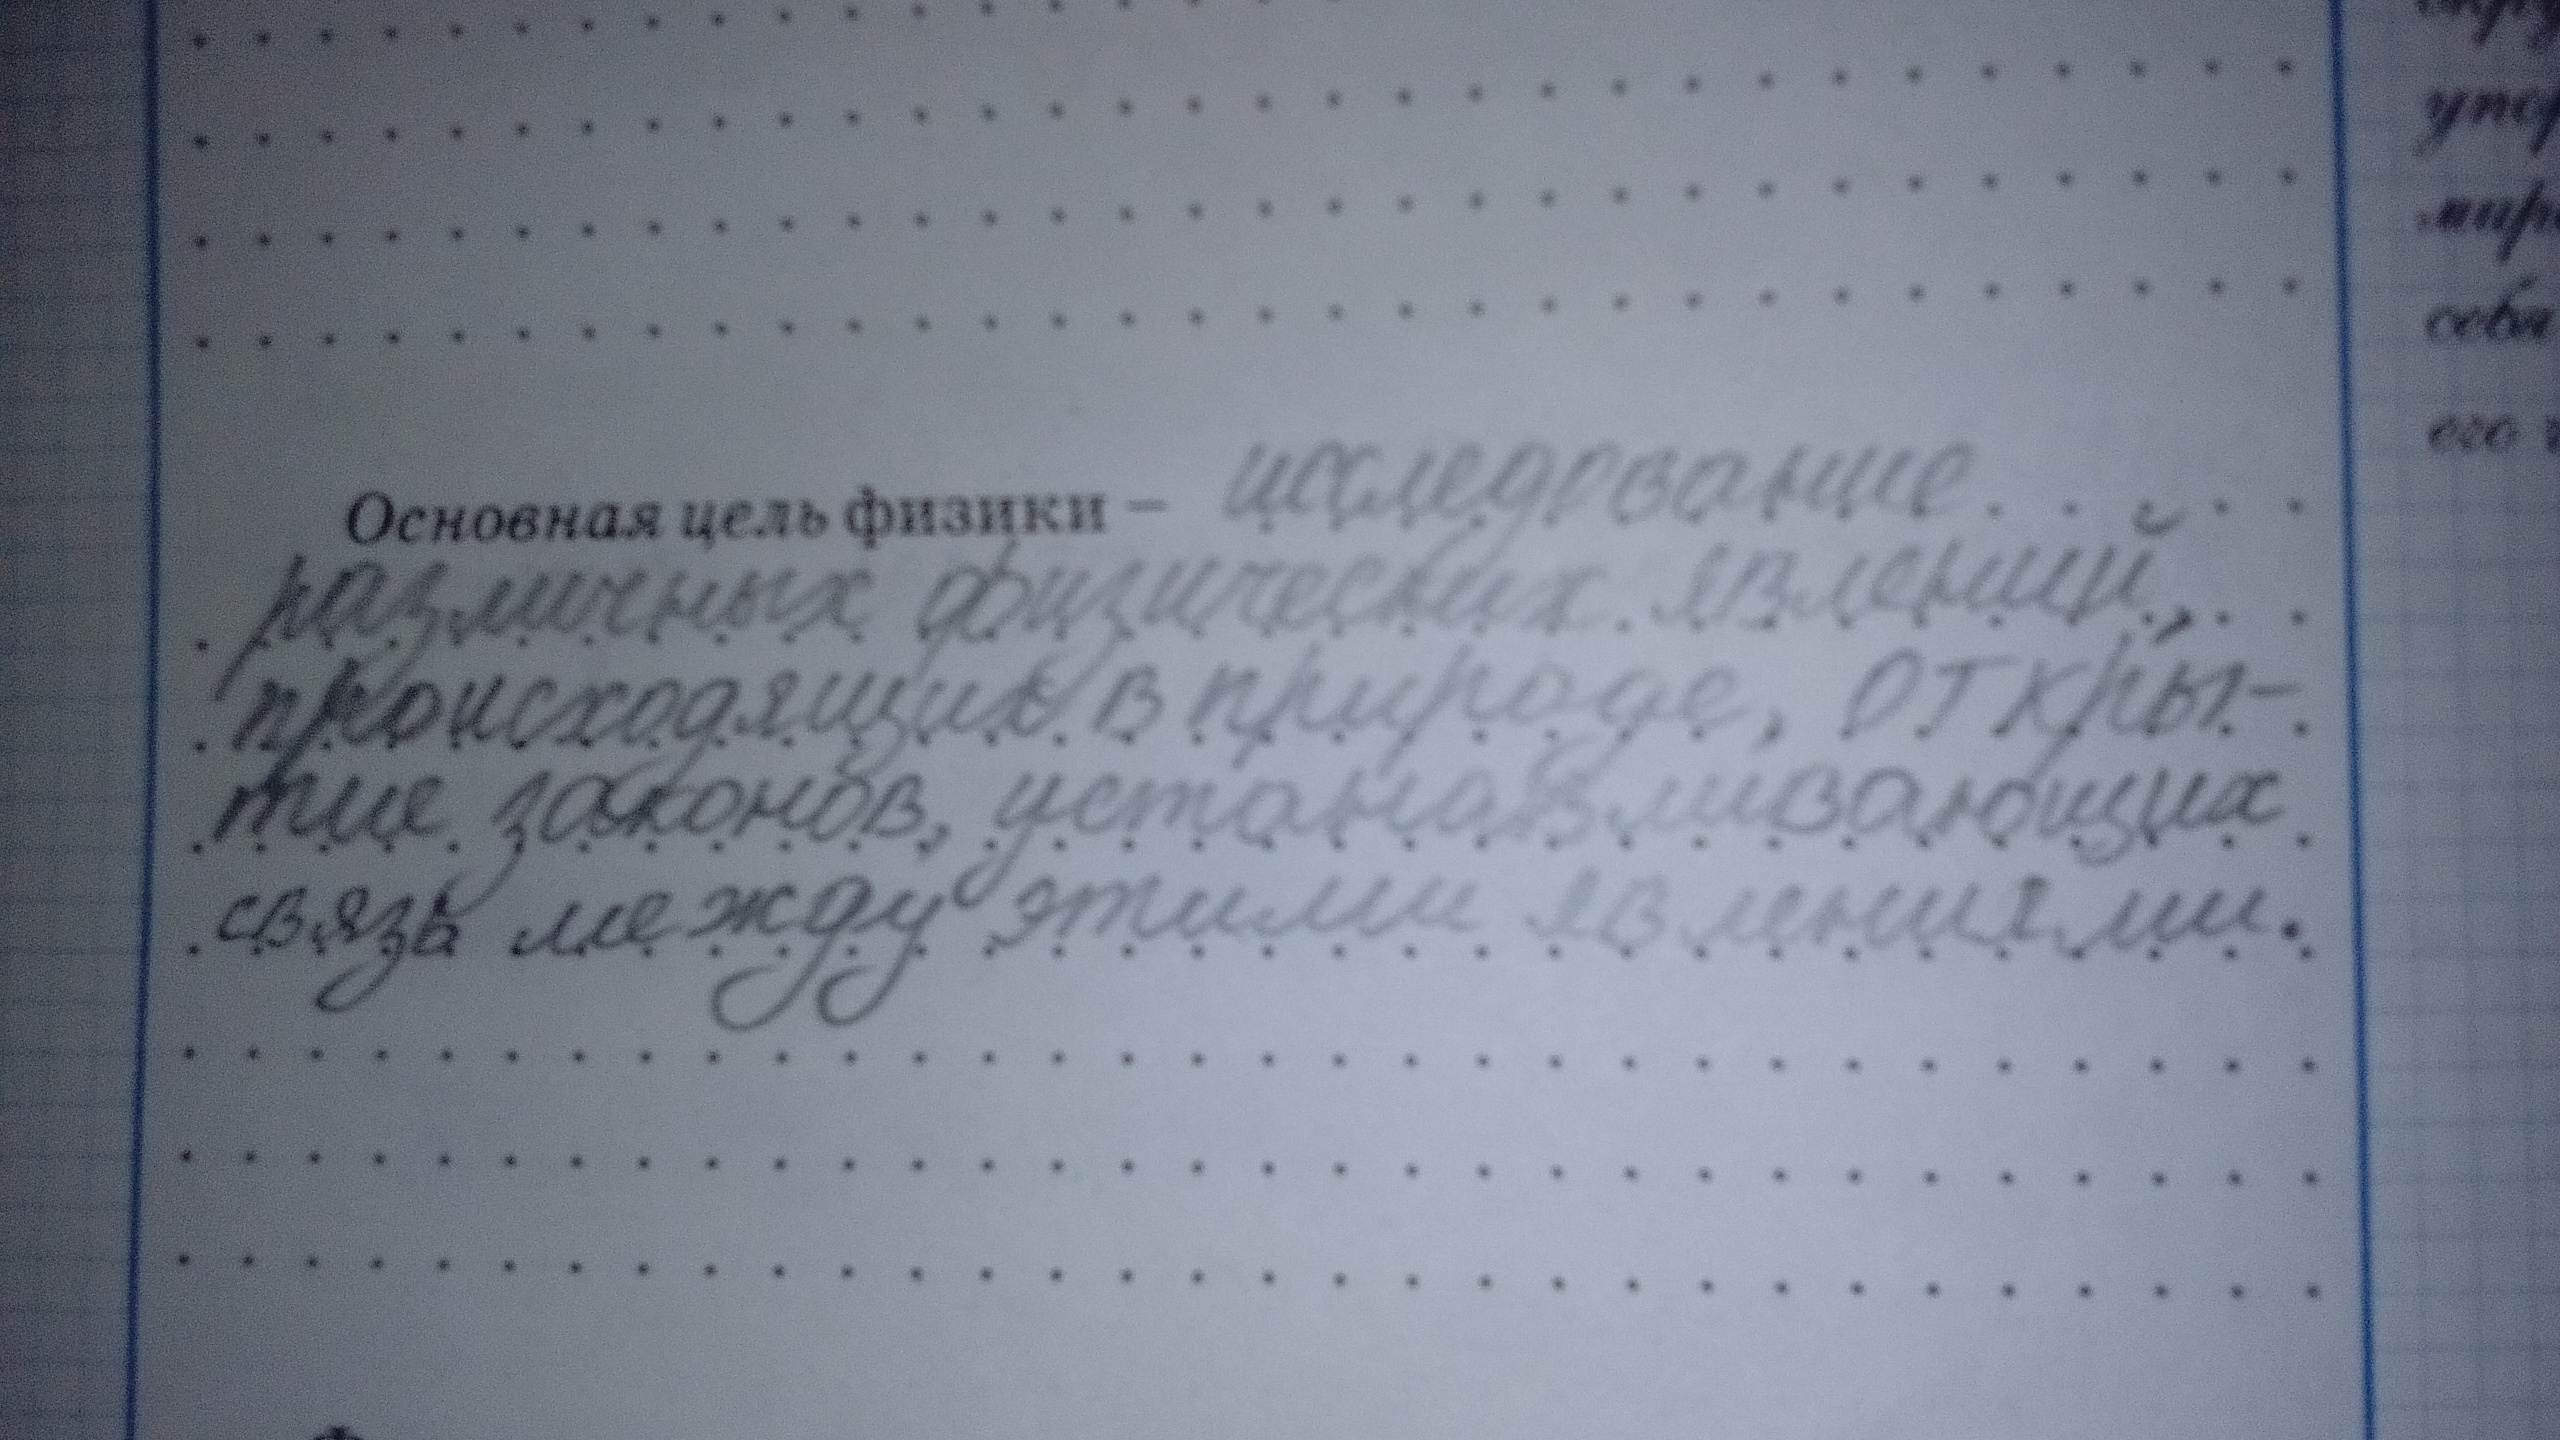 Основная цель физики – исследование
различных физических явлений,
происходящих в природе, откры-
тие законов, устанавливающих
связь между этими явлениями.
себя
его